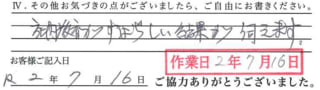 Ⅳ. その他お気づきの点がございましたら、ご自由にお書きください。
すばらしい結果が伺えます。
お客様ご記入日
作業日2年7月16日
R 2年7月16日 ご協力ありがとうございました。